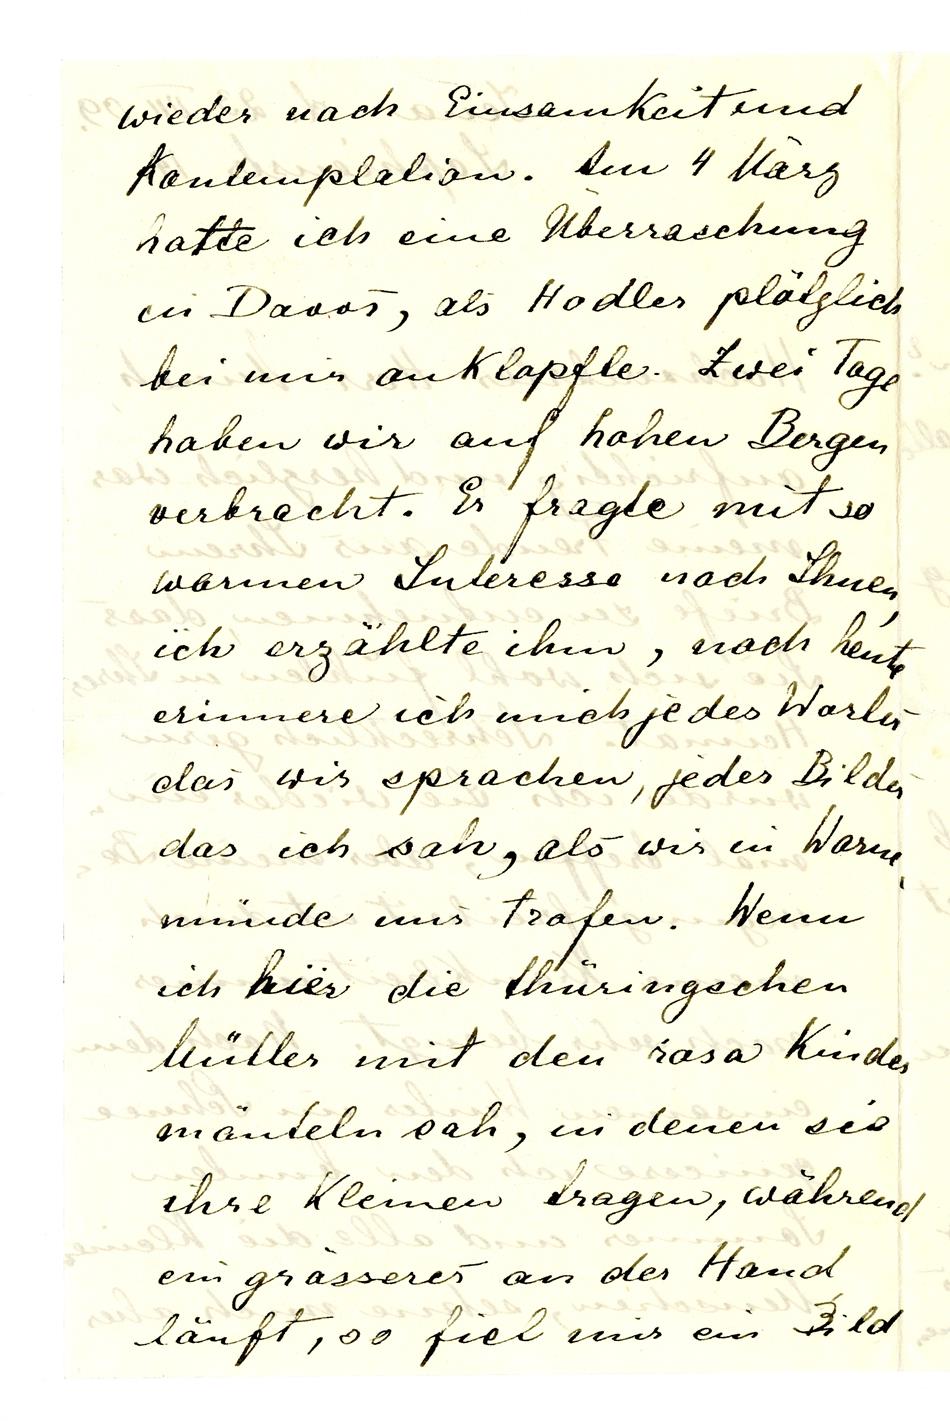 wieder nach Einsamkeit und
Kontemplation. Am 4 März
hatte ich eine Überraschung
in Davos, als Hodler plötzlich
bei mir anklopfte. Zwei Tage
haben wir auf hohen Bergen
verbracht. Er fragte mit so
warmen Interesse nach Ihnen,
ich erzählte ihm, noch heute
erinnere ich mich jedes Wortes
das wir sprachen, jedes Bildes
das ich sah, als wir in Warne-
münde uns trafen. Wenn
ich hier die thüringschen
Mütter mit den rosa Kinder
mänteln sah, in denen sie
ihre Kleinen tragen, während
ein grösseres an der Hand
läuft, so fiel mir ein Bild